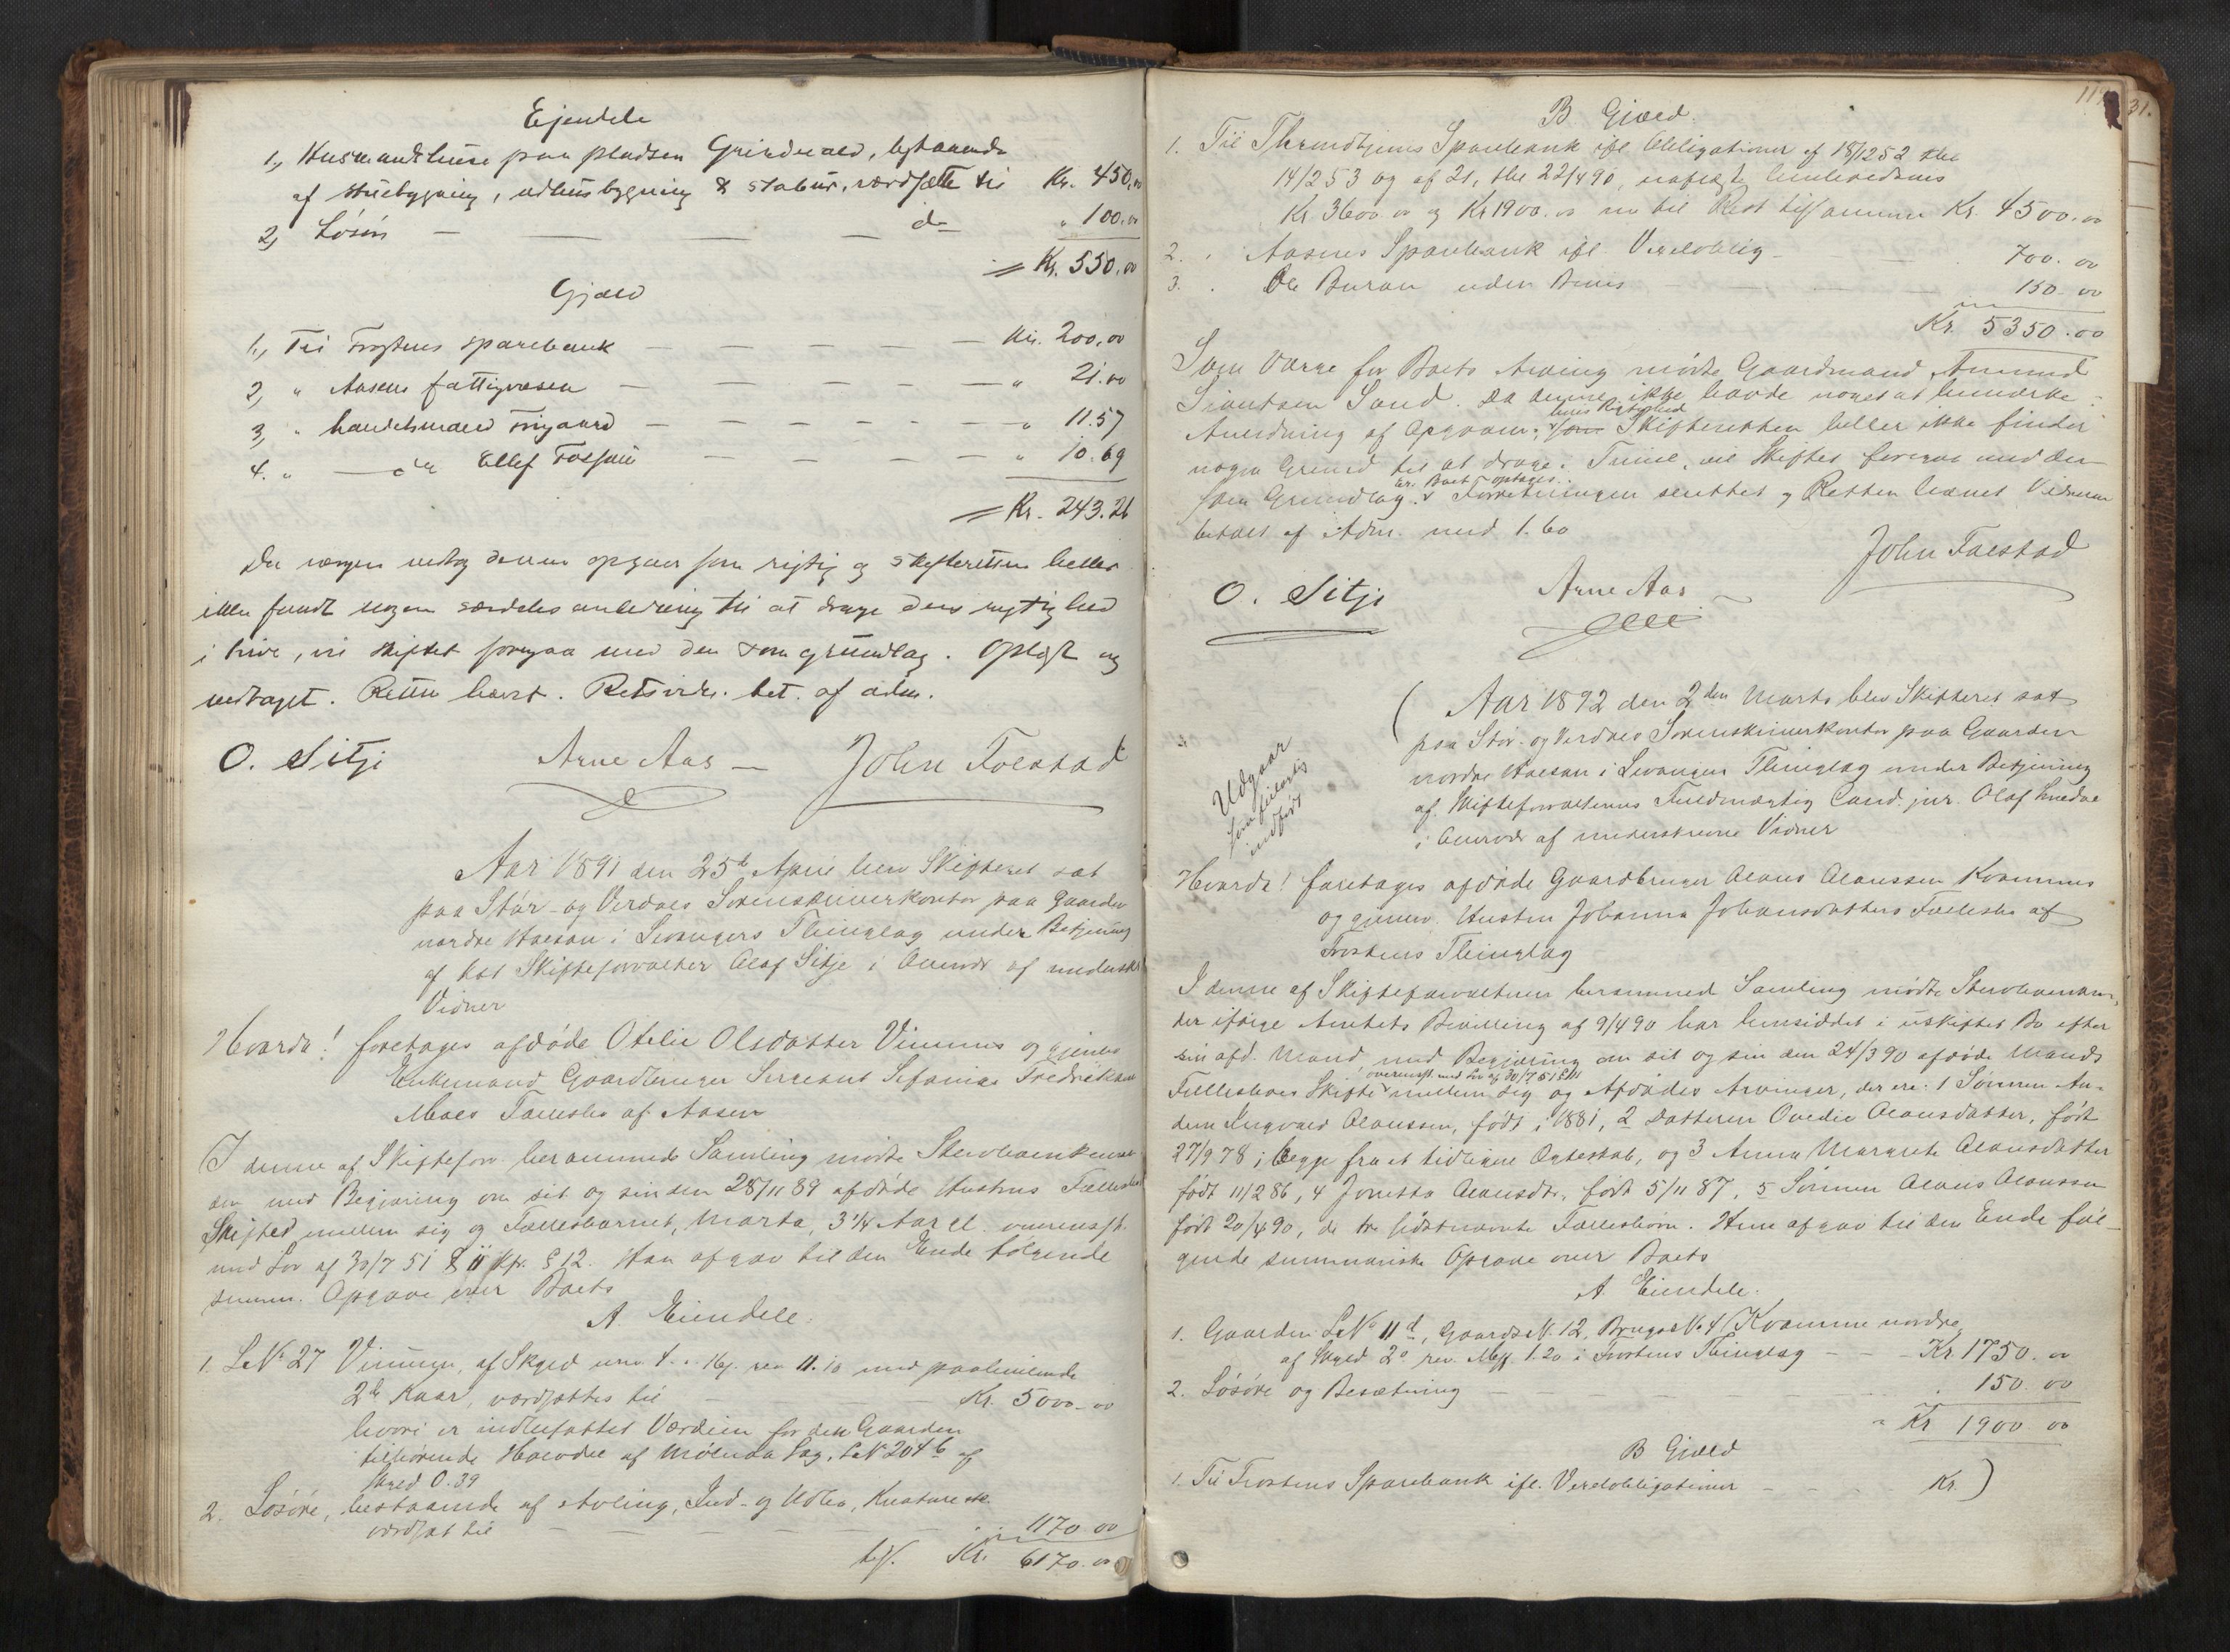 Ejendele
1, Husmandshuse paa pladsen Grindvald, bestaaende
af stuebygning, udhusbygning & stabur, værdsatte til Kr. 450,00
2, Løsøre — — — — do " 100.00
= Kr. 550.00
Gjæld
1, Til Frostens sparebank — — — — — Kr. 200,00
2, " Aasens fattigvæsen — — — — — " 21.00
3, " handelsmand — — — — — " 11.57
4. " — do Ellef — — — — " 10.69
= Kr. 243.26
Da værgen vedtog denne opgave som rigtig og skifteretten heller
ikke fandt nogen særdeles anledning til at drage dens rigtighed
i tvivl, vil skiftet foregaa med den som grundlag. Oplæst og
vedtaget. Retten hævet. Retsvidn. bet. af adm.
O. Sitje Arne Aas — John Foestad
Aar 1891 den 25de April blev Skifteret sat
paa Stør- og Verdals Sorenskriverkontor paa Gaarden
nordre Halsan i Levangers Thinglag under Betjening
af kst Skifteforvalter Olaf Sitje i Overvær af underskr.
Vidner
Hvorda! foretages afdøde Otelie Olsdatter Vinnes og gjenlev.
Enkemand Gaardbruger Sergeant Sefanias Fredriksen
Moes Fællesbo af Aasen
I denne af Skifteforv. berammede Samling mødte Stervboenkeman-
den med Begjæring om sit og sin den 28/11 89 afdøde Hustrus Fællesboes
Skiftes mellem sig og Fællesbarnet, Marta, 3 1/4 Aar gl. overensst.
med Lov af 30/7 51 § 11 jfr. § 12. Han afgav til den Ende følgende
summ. Opgave over Boets
A. Eiendele.
1. LNo 27 Vinnes, af Skyld urev. 4. . . Kf. rev 11.10 med paahvilende
2de Kaar, værdsattes til — — — Kr. 5000.00
hvori er indbefattet Værdien for den Gaarden
tilhørende Halvdel af Mølnaa Sag, LNo 204 b af
Skyld 0.39
2. Løsøre, bestaaende af Avling, Ind- og Udbo, Kreature etc.
værdsat til — — — — — " 1170.00
tils. Kr. 6170.00
31.
B. Gjæld.
1. Til Throndhjems Sparebank ifl. Obligationer af 18/12 52 tbl
14/2 53 og af 21, tbl 22/4 90, henholdsvis
Kr 3600.00 og Kr 1900.00 nu til Rest tilsammen Kr. 4500.00
2. " Aasens Sparebank ifl. Vexeloblig — — 700.00
3. " Ole Buran uden Bevis — — — 150.00
Kr. 5350.00
Som Værge for Boets Arving mødte Gaardmand Amund
Sivertsen Sand. Da denne ikke havde noget at bemærke i
hvis Rigtighed
Anledning af Opgaven, som Skifteretten heller ikke finder
nogen Grund til at drage i Tvivl, vil Skiftet foregaa med den
Boet optages.
som Grundlag. Forretningen sluttet og Retten hævet. Vidnerne
betalt af Adm. med 1.60
O. Sitje Arne Aas — John Foestad
(Aar 1892 den 2den Marts blev Skifteret sat
paa Stør- og Verdals Sorenskriverkontor paa Gaarden
nordre Halsan i Levangers Thinglag under Betjening
af Skifteforvalterens Fuldmægtig Cand. jur. Olaf
i Overvær af underskrevne Vidner
Udgaar
som feilagtig
indført
Hvorda! foretages afdøde Gaardbruger Olaus Olaussen Kvammes
og gjenlev. Hustru Johanna Johansdatters Fællesbo af
Frostens Thinglag
I denne af Skifteforvalteren berammed Samling mødte Stervboenken,
der ifølge Amtets Bevilling af 9/4 90 har hensiddet i uskiftet Bo efter
sin afd. Mand med Begjæring om sit og sin den 24/3 90 afdøde Mands
overensst. med Lov af 30/7 51 § 11
Fællesboes Skifte mellem sig og Afdødes Arvinger, der ere: 1 Sønnen An-
dern Ingvald Olaussen, født i 1881, 2 Datteren Ovedie Olausdatter, født
27/9 78; begge fra et tidligere Ægteskab, og 3 Anna Margrete Olausdatter
født 11/2 86, 4 Jonetta Olausdtr. født 5/11 87, 5 Sønnen Olaus Olaussen
født 20/4 90, de tre sidstnævnte Fællesbørn. Hun afgav til den Ende føl-
gende summariske Opgave over Boets
A. Eiendele.
1. Gaarden LNo 11 d, Gaards No. 12, Brugs No 4 Kvamme nordre,
af Skyld 20 rev. Mk 1.20 i Frostens Thinglag — — — Kr. 1750.00
2. Løsøre og Besætning — — — — . 150.00
Kr 1900 00
B Gjæld
1. Til Frostens Sparebank ifl. Vexelobligationer — — — Kr. )